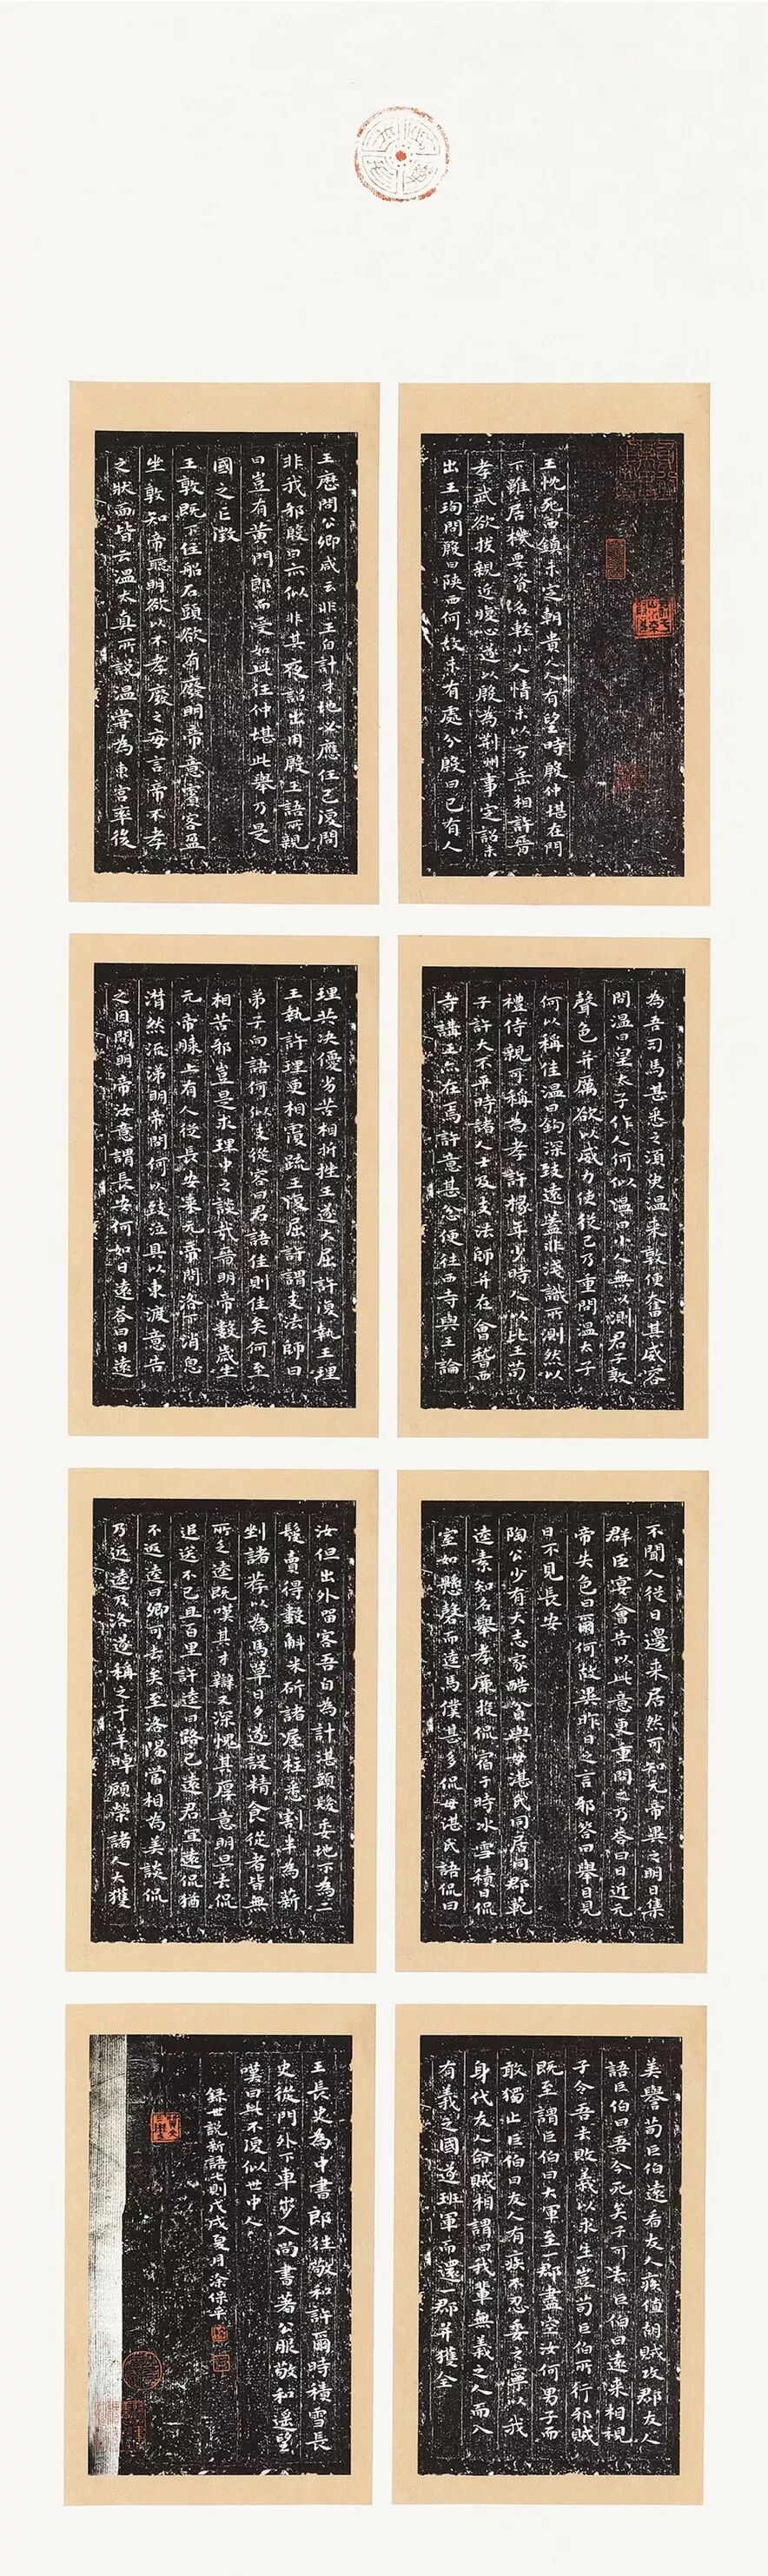 王忱死西鎮未定朝貴人人有望時殷仲堪在門
下雖居機要資名輕小人情未以方岳相許晉
孝武欲拔親近腹心遂以殷為荊州事定詔未
出王珣問殷曰陝西何故未有處分殷曰已有人
王歷問公卿咸云非王自計才地必應任己復問
非我邪殷曰亦似非其夜詔出用殷王語所親
曰豈有黃門郎而受如此任仲堪此舉乃是
國之亡徵
王敦既下住船石頭欲有廢明帝意賓客盈
坐敦知帝聰明欲以不孝廢之每言帝不孝
之狀而皆云溫太真所說溫嘗為東宮率後
為吾司馬甚悉之須臾溫來敦便奮其威容
問溫曰皇太子作人何似溫曰小人無以測君子敦
聲色并厲欲以威力使從己乃重問溫太子
何以稱佳溫曰鈎深致遠蓋非淺識所測然以
禮侍親可稱為孝許掾年少時人以比王苟
子許大不平時諸人士及支法師并在會稽西
寺講王亦在焉許意甚忿便往西寺與王論
理共決優劣苦相折挫王遂大屈許復執王理
王執許理更相覆疏王復屈許謂支法師曰
弟子向語何似支從容曰君語佳則佳矣何至
相苦邪豈是求理中之談哉晉明帝數歲坐
元帝膝上有人從長安來元帝問洛下消息
潸然流涕明帝問何以致泣具以東渡意告
之因問明帝汝意謂長安何如日遠答曰日遠
不聞人從日邊來居然可知元帝異之明日集
群臣宴會告以此意更重問之乃答曰日近元
帝失色曰爾何故異昨日之言邪答曰舉目見
日不見長安
陶公少有大志家酷貧與母湛氏同居同郡範
逵素知名舉孝廉投侃宿于時冰雪積日侃
室如懸磬而逵馬僕甚多侃母湛氏語侃曰
汝但出外留客吾自為計湛頭髮委地下為二
髲賣得數斛米斫諸屋柱悉割半為薪
剉諸荐以為馬草日夕遂設精食從者皆無
所乏逵既嘆其才辯又深愧其厚意明旦去侃
追送不已且百里許逵曰路已遠君宜還侃猶
不返逵曰卿可去矣至洛陽當相為美談侃
乃返逵及洛遂稱之于羊晫顧榮諸人大獲
美譽荀巨伯遠看友人疾值胡賊攻郡友人
語巨伯曰吾今死矣子可去巨伯曰遠來相視
子令吾去敗義以求生豈荀巨伯所行邪賊
既至謂巨伯曰大軍至一郡盡空汝何男子而
敢獨止巨伯曰友人有疾不忍委之寧以我
身代友人命賊相謂曰我輩無義之人而入
有義之國遂班軍而還一郡并獲全
王長史為中書郎往敬和許爾時積雪長
史從門外下車步入尚書著公服敬和遙望
嘆曰此不復似世中人
錄世說新語七則戊戌夏月涂保平